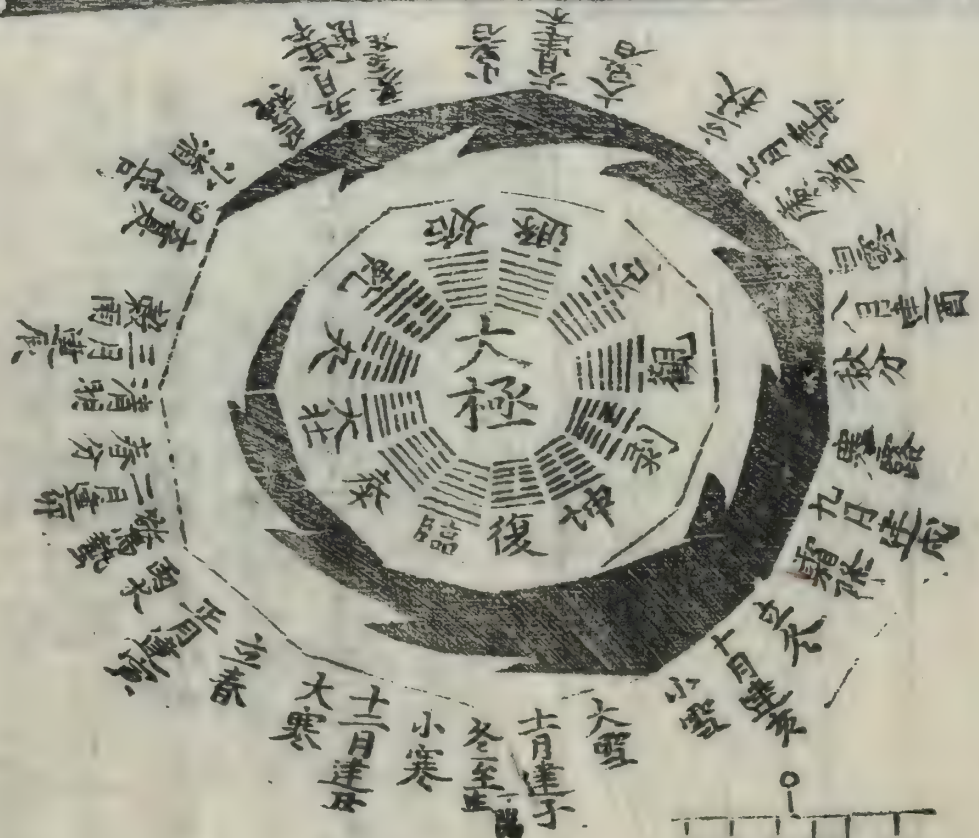 大極
復
臨
泰
大壯
夬
乾
姤
遯
否
觀
剝
坤
大雪
十一月建子
冬至
小寒
十二月建丑
大寒
立春
正月建寅
雨水
驚蟄
二月建卯
春分
清明
三月建辰
穀雨
立夏
四月建巳
小滿
芒種
五月建午
夏至
小暑
六月建未
大暑
立秋
七月建申
處暑
白露
八月建酉
秋分
寒露
九月建戌
霜降
立冬
十月建亥
小雪